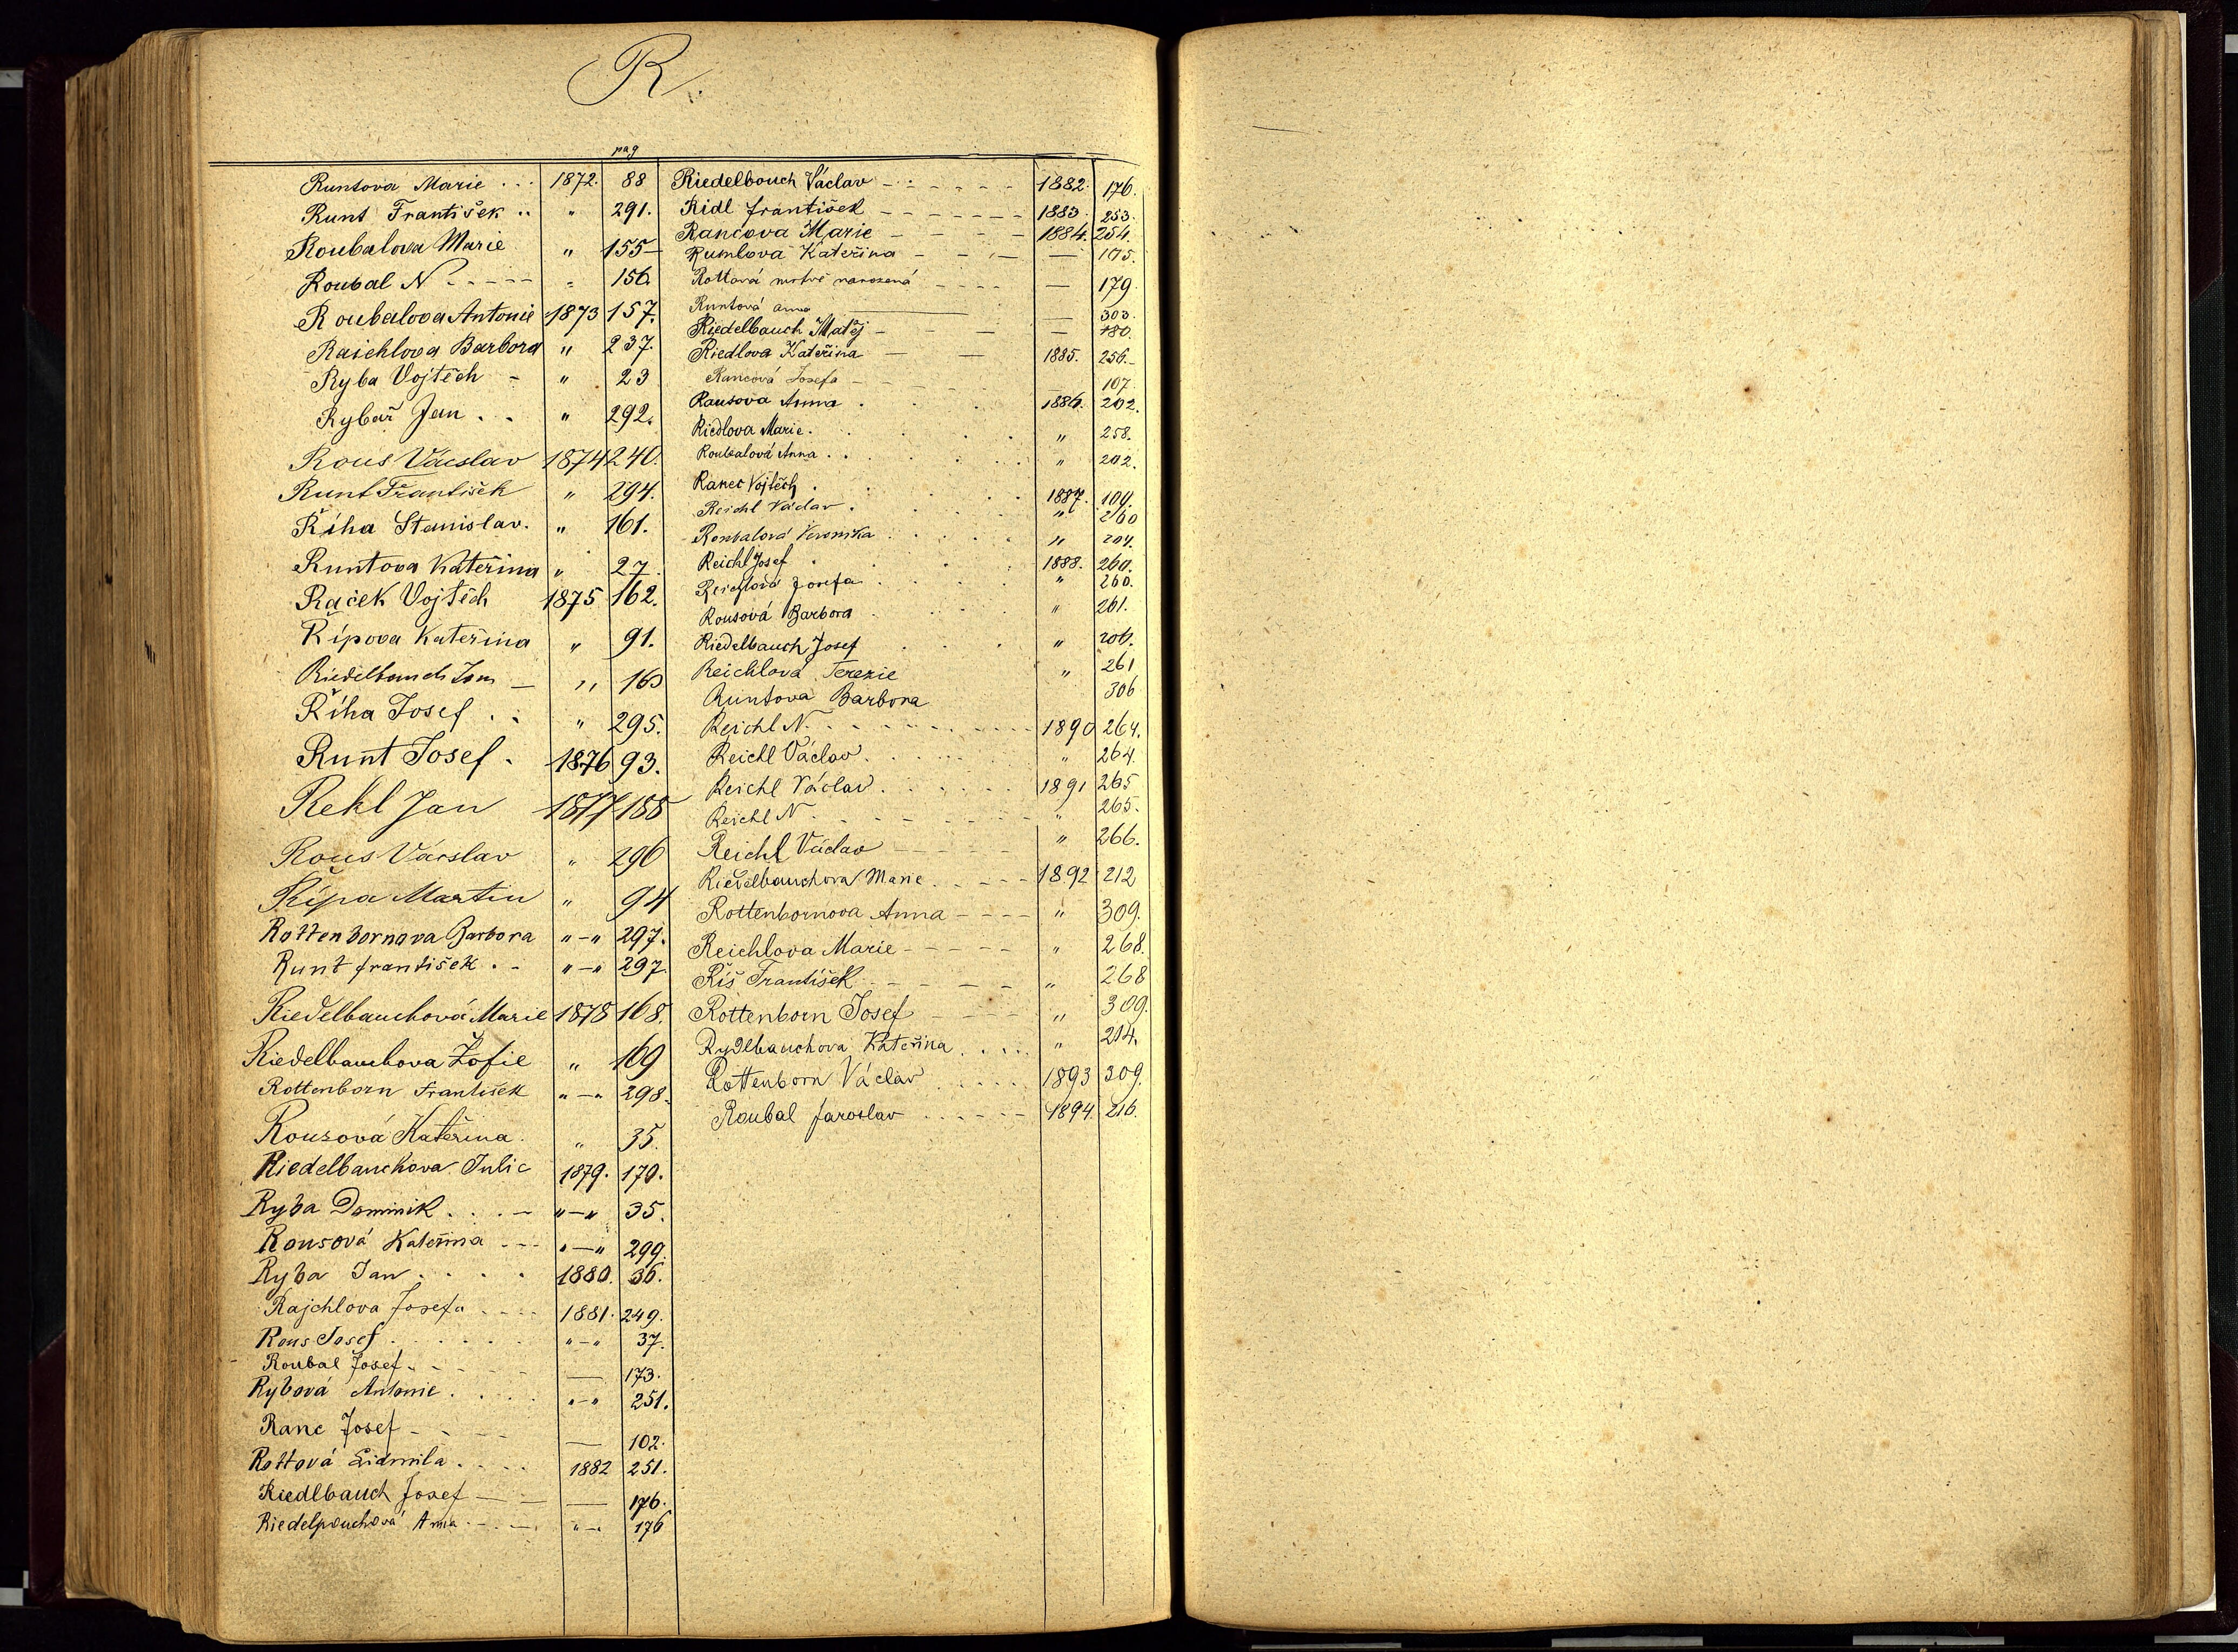 R.
pag
Runtova Marie . . . 1872. 88
Runt František . . " 291.
Roubalova Marie " 155
Roubal N - - - - " 156
Roubalova Antonie 1873 157.
Raichlova Barbora " 237.
Ryba Vojtěch - " 23
Rybař Jan . . " 292.
Rous Václav 1874 240.
Runt František " 294.
Říha Stanislav. " 161.
Runtova Kateřina " 27.
Raček Vojtěch 1875 162.
Řípova Kateřina " 91.
Riedelbauch Jan - " 163
Říha Josef . . " 295.
Runt Josef . 1876 93.
Rekl Jan 1877 188
Rous Václav " 296
Řípa Martin " 94
Rottenbornova Barbora "-" 297.
Runt František . - "-" 297.
Riedelbauchová Marie 1878 168.
Riedelbauchova Žofie " 169
Rottenborn František "-" 298.
Rousová Kateřina. " 35.
Riedelbauchova Julie 1879. 170.
Ryba Dominik . . . - "-" 35.
Rousová Kateřina - - - "-" 299.
Ryba Jan . . . . 1880. 36.
Rajchlova Josefa - - - - 1881. 249.
Rous Josef . . . . . "-" 37.
Roubal Josef. - - - — 173.
Rybová Antonie . . . . "-" 251.
Ranc Josef - - - - — 102.
Rottová Lidmila . . . . 1882 251.
Riedlbauch Josef - - — 176.
Riedelpouchová Anna . - . - . "-" 176
Riedelbouch Václav - - - - - - 1882. 176.
Ridl František - - - - - - - 1883. 253.
Rancova Marie - - - - 1884. 254.
Rumlova Kateřina - - - — 105.
Rottová mrtvě narozená - - - - — 179
Runtová Anna — — 303.
Riedelbauch Matěj - - - — 180.
Riedlova Kateřina — — 1885. 256.-
Rancová Josefa - - - - — 107.
Rausova Anna . . . 1886. 202.
Riedlova Marie . . . . " 258.
Roubalová Anna . . . . . " 202.
Ranec Vojtěch . . . . 1887. 109.
Reichl Václav . . . . " 260
Roubalová Veronika . . . . " 204.
Reichl Josef . . . . 1888. 260.
Reichlová Josefa . . . . " 260.
Rousová Barbora . . . . " 261.
Riedelbauch Josef . . . " 206.
Reichlová Terezie " 261
Runtova Barbora 306
Reichl N. - - - - - - - 1890 264.
Reichl Václav . . . . . . " 264.
Reichl Václav . . . . . . 1891 265
Reichl N . - - - - - - " 265.
Reichl Václav - - - - - " 266.
Riedelbauchova Marie . - - - - 1892 212
Rottenbornova Anna - - - - " 309.
Reichlova Marie - - - - - " 268.
Říš František - - - - - " 268
Rottenborn Josef - - - - " 309.
Rydlbauchova Kateřina . . . . " 214.
Rottenborn Václav . . . . . 1893 309.
Roubal Jaroslav . . - - - 1894. 216.